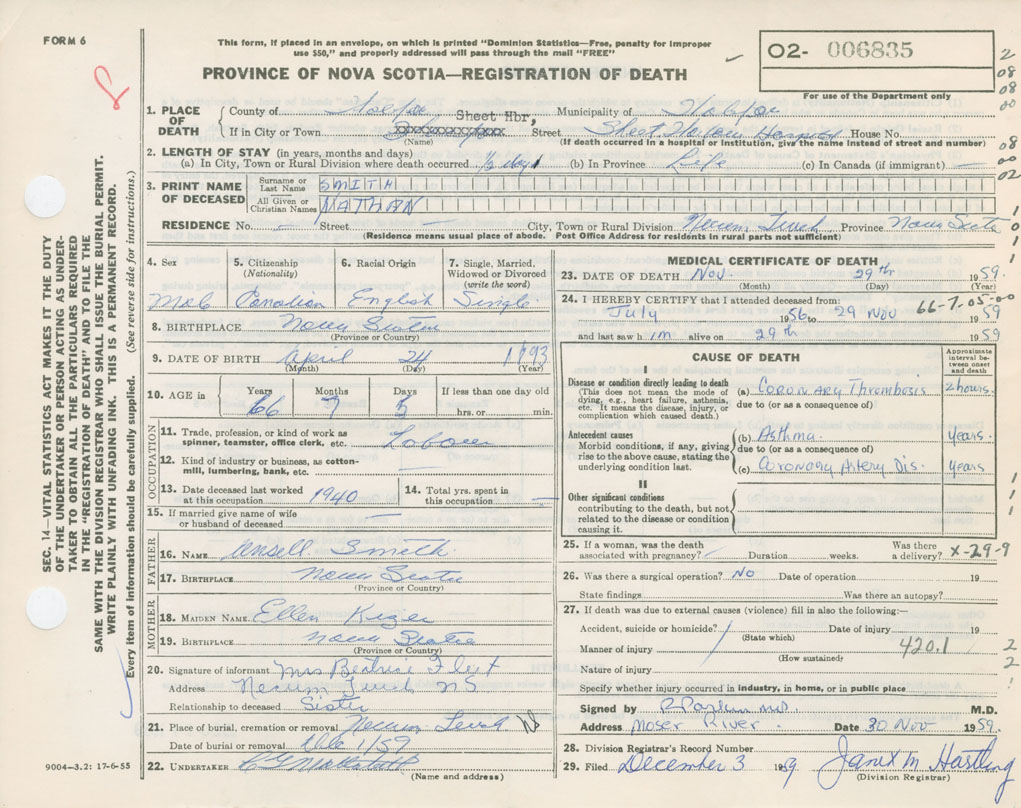 FORM 6
This form, if placed in an envelope, on which is printed "Dominion Statistics—Free, penalty for improper
use $50," and properly addressed will pass through the mail "FREE"
02- 006835
For use of the Department only
PROVINCE OF NOVA SCOTIA—REGISTRATION OF DEATH
2
08
08
00
08
00
02
1
0
1
SEC. 14—VITAL STATISTICS ACT MAKES IT THE DUTY
OF THE UNDERTAKER OR PERSON ACTING AS UNDER-
TAKER TO OBTAIN ALL THE PARTICULARS REQUIRED
IN THE "REGISTRATION OF DEATH" AND TO FILE THE
SAME WITH THE DIVISION REGISTRAR WHO SHALL ISSUE THE BURIAL PERMIT.
WRITE PLAINLY WITH UNFADING INK. THIS IS A PERMANENT RECORD.
Every item of information should be carefully supplied. (See reverse side for instructions.)
1. PLACE OF DEATH
County of Halifax Municipality of Halifax
Sheet Hbr,
If in City or Town xxxxxxxxxxxxxx Street Sheet Harbour Hospital House No.
(Name) (If death occurred in a hospital or institution, give the name instead of street and number)
2. LENGTH OF STAY (in years, months and days)
(a) In City, Town or Rural Division where death occurred ½ day (b) In Province Life (c) In Canada (if immigrant) —
3. PRINT NAME OF DECEASED
Surname or Last Name SMITH
All Given or Christian Names NATHAN
RESIDENCE No. — Street — City, Town or Rural Division Necum Teuch Province Nova Scotia
(Residence means usual place of abode. Post Office Address for residents in rural parts not sufficient)
4. Sex 5. Citizenship (Nationality) 6. Racial Origin 7. Single, Married, Widowed or Divorced (write the word)
Male Canadian English Single
8. BIRTHPLACE Nova Scotia
(Province or Country)
9. DATE OF BIRTH April 24 1893
(Month) (Day) (Year)
10. AGE in Years Months Days If less than one day old
66 7 5 hrs. or min.
OCCUPATION
11. Trade, profession, or kind of work as spinner, teamster, office clerk, etc. Laborer
12. Kind of industry or business, as cotton-mill, lumbering, bank, etc. —
13. Date deceased last worked at this occupation 1940 14. Total yrs. spent in this occupation —
15. If married give name of wife or husband of deceased —
FATHER
16. NAME Ansell Smith
17. BIRTHPLACE Nova Scotia
(Province or Country)
MOTHER
18. MAIDEN NAME Ellen
19. BIRTHPLACE Nova Scotia
(Province or Country)
20. Signature of informant Mrs Beatrice Fleet
Address Necum Teuch NS
Relationship to deceased Sister
21. Place of burial, cremation or removal Necum Teuch
Date of burial or removal Dec 1/59
22. UNDERTAKER
(Name and address)
9004—3.2: 17-6-55
MEDICAL CERTIFICATE OF DEATH
23. DATE OF DEATH Nov. 29th 1959.
(Month) (Day) (Year)
24. I HEREBY CERTIFY that I attended deceased from: 66-7-05-00
July 1956 to 29 Nov 1959
and last saw him alive on 29th 1959
CAUSE OF DEATH
Approximate interval between onset and death
I
Disease or condition directly leading to death
(This does not mean the mode of dying, e.g., heart failure, asthenia, etc. It means the disease, injury, or complication which caused death.)
(a) Coronary Thrombosis 2 hours.
due to (or as a consequence of)
Antecedent causes
Morbid conditions, if any, giving rise to the above cause, stating the underlying condition last.
(b) Asthma. years.
due to (or as a consequence of)
(c) Coronary Artery Dis. years
II
Other significant conditions
contributing to the death, but not related to the disease or condition causing it.
1
1
1
25. If a woman, was the death associated with pregnancy? Duration weeks. Was there a delivery? X-29-9
26. Was there a surgical operation? No Date of operation 19
State findings Was there an autopsy?
27. If death was due to external causes (violence) fill in also the following:—
Accident, suicide or homicide? Date of injury 19
(State which)
Manner of injury 420.1 2
(How sustained)
Nature of injury 2
Specify whether injury occurred in industry, in home, or in public place
Signed by M.D.
Address Moser River. Date 30 Nov 1959.
28. Division Registrar's Record Number
29. Filed December 3 1959 Janet M Hartling
(Division Registrar)